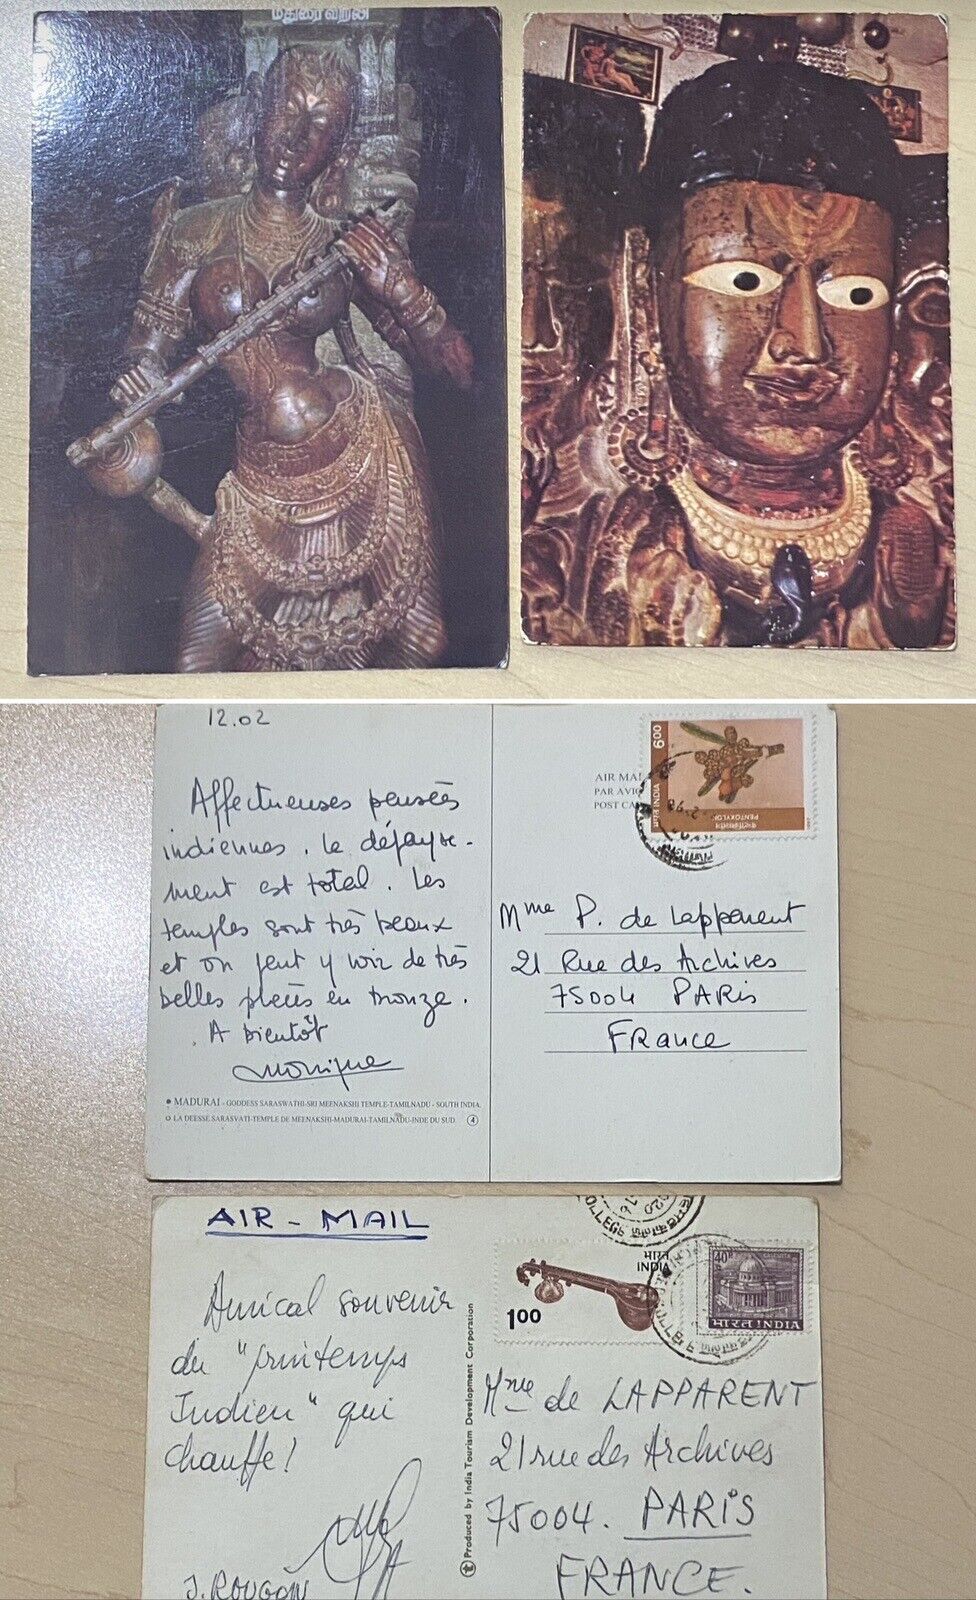 மதுரை வீரன்
12.02
Affectueuses pensées
indiennes. Le dépayse-
ment est total. Les
temples sont très beaux
et on peut y voir de très
belles pièces en bronze.
A bientôt
Monique
MADURAI - GODDESS SARASWATHI-SRI MEENAKSHI TEMPLE-TAMILNADU - SOUTH INDIA.
LA DEESSE SARASVATI-TEMPLE DE MEENAKSHI-MADURAI-TAMILNADU-INDE DU SUD. 4
AIR MAI
PAR AVIO
POST CA
6.00
भारत INDIA
PENTOXYLON
Mme P. de Lapparent
21 Rue des Archives
75004 PARIS
France
AIR-MAIL
Amical souvenir
du "printemps
Indien" qui
chauffe!
J. ROUGON
Produced by India Tourism Development Corporation
भारत
INDIA
1.00
40
CALCUTTA
भारत INDIA
Mme de LAPPARENT
21 rue des Archives
75004. PARIS
FRANCE.